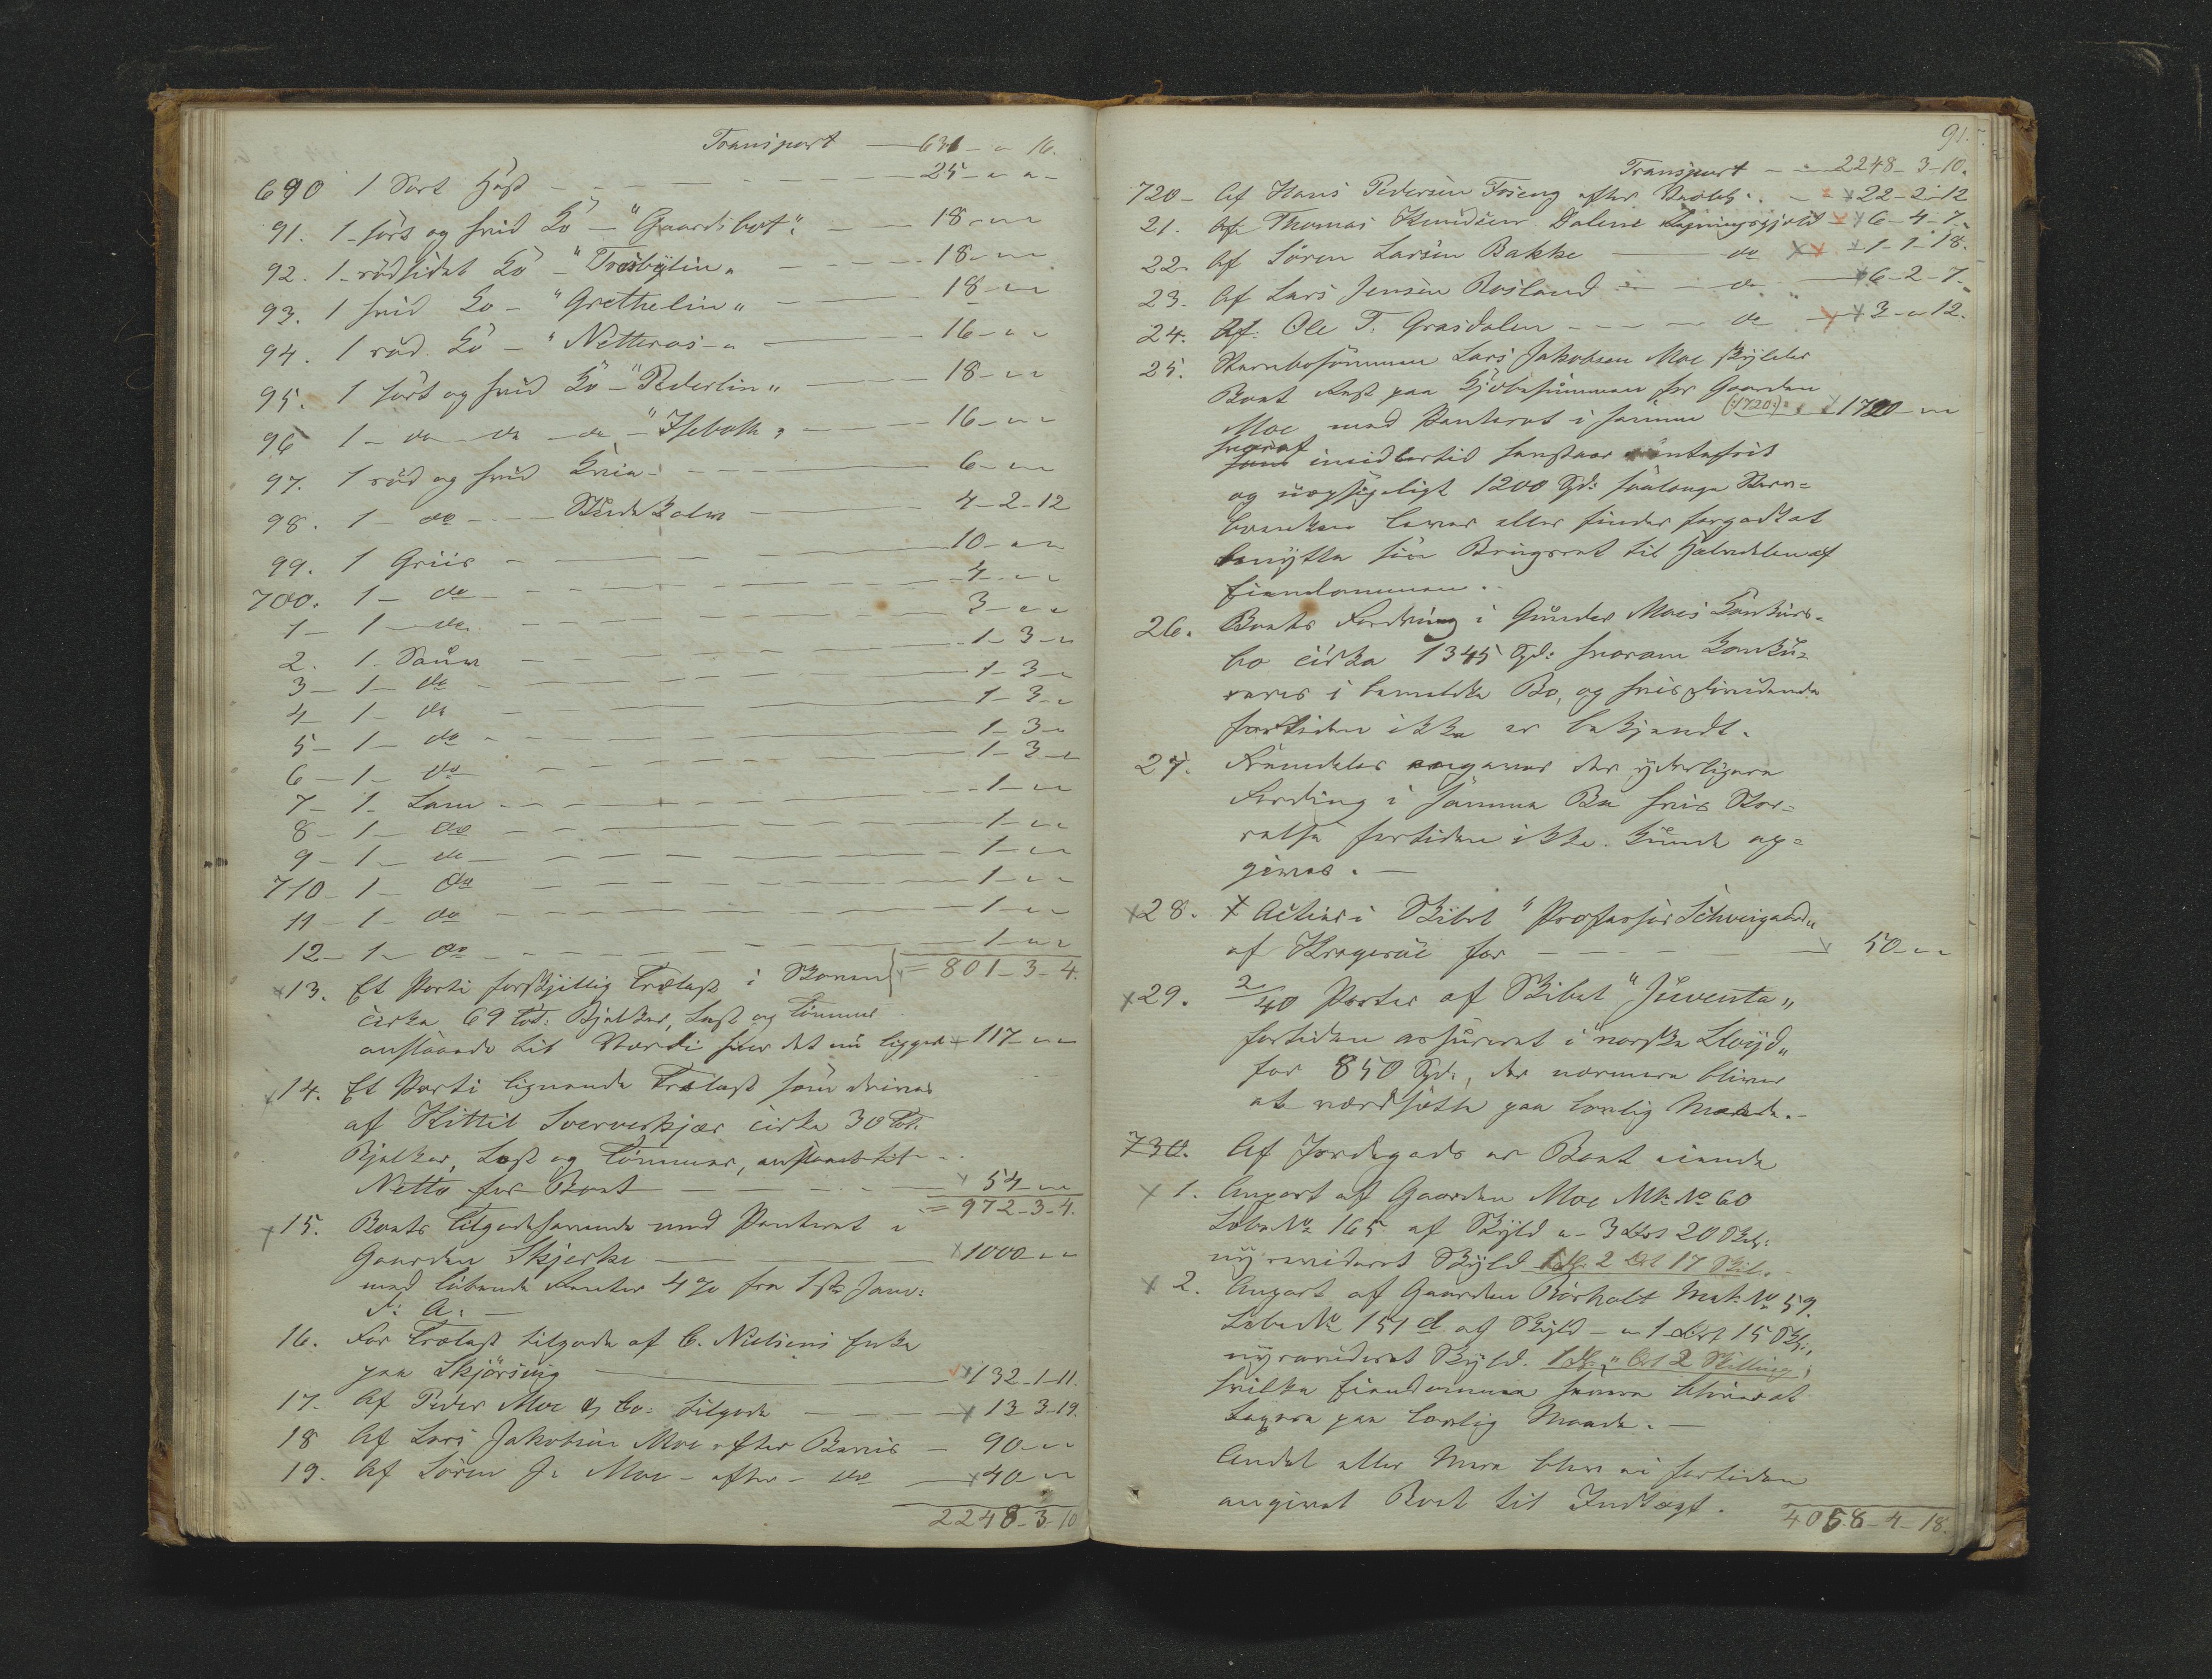 Transport — 631 - " 16.
690 1 Sort Hest — 25 - " " -
91. 1 sort og hvid Ko - "Gaardsbot" — 18 - " "
92. 1 rødsidet Ko - — 18 - " "
93. 1 hvid Ko - "Grethelin" — 18 - " "
94. 1 rød Ko - "Netteros" — 16 - " "
95. 1 sort og hvid Ko - "Pederlin" — 18 - " "
96 1 - do do do - — 16 - " "
97. 1 rød og hvid Kvie — 6 - " "
98. 1 - do — Studekalv — 4 - 2 - 12
99. 1 Griis — 10 - " "
700. 1 - do — 4 - " "
1 - 1 - do — 3 - " "
2. 1 Sau — 1 - 3 - "
3 - 1 - do — 1 - 3 - "
4 1 - do — 1 - 3 - "
5 - 1 - do — 1 - 3 - "
6 - 1 - do — 1 - 3 - "
7 - 1 - Lam — 1 - " "
8 - 1 - do — 1 - " "
9 - 1 - do — 1 - " "
710 - 1 - do — 1 - " "
11 - 1 - do — 1 - " "
12 - 1 - do — 1 - " "
= 801 - 3 - 4.
13. Et Parti forskjellig Trælast i Skoven
cirka 69 Tolt: Bjelker, Last og Tømmer
anslaaede til Værdi som det nu ligger 117 - " "
14. Et Parti lignende Trælast som drives
af Kittil Sververkjær cirka 30 Tolt.
Bjelker, Last og Tømmer, anslaaet til
Netto for Boet — 54 - " "
= 972 - 3 - 4.
15. Boets Tilgodehavende med Panteret i
Gaarden Skjerke — 1000 - " "
med løbende Renter 4 % fra 1ste Janr:
d: A: —
16. For Trælast tilgode af C. Nielsens Enke
paa Skjørsing — 132 - 1 - 11.
17. Af Peder Moe & Co: tilgode — 13 - 3 - 19.
18 Af Lars Jakobsen Moe efter Beviis — 90 - " "
19. Af Søren J: Moe - efter - do — 40 - " "
2248 - 3 - 10
91.
Transport — 2248 - 3 - 10.
720 - Af Hans Pedersen Foseng efter — 22 - 2 - 12
21. Af Thomas Knudsen Dalene — 6 - 4 - 7.
22. Af Søren Larsen Bakke — do 1 - 1 - 18.
23. Af Lars Jensen Rosland — do 6 - 2 - 7.
24. Af Ole T. Grasdalen — do 3 - " 12.
25. Stervbosønnen Lars Jakobsen Moe skylder
Boet Rest paa Kjøbesummen for Gaarden
Moe med Panteret i samme (:1720:) 1720 - " "
hvoraf
imidlertid henstaar rentefrit
og uopsigeligt 1200 Spd: saalænge Stervboenken
lever eller finder forgodt at
benytte sin Brugsret til Halvdelen af
Eiendommen.
26. Boets Fordring i Gunder Moes Konkurs-
bo cirka 1345 Spd: hvorom Konku-
reres i bemeldte Bo, og hvis Dividende
fortiden ikke er bekjendt.
27. Fremdeles angaves der yderligere
Fordring i samme Bo hvis Stør-
relse fortiden ikke kunde op-
gives. —
28. 1 Actier i Skibet "Professor Schweigaard"
af Kragerøe for — 50 - " "
29. 2/40 Parter af Skibet "Juventa"
fortiden assureret i "norske Lloyd"
for 850 Spd:, der nærmere bliver
at værdsette paa lovlig Maade. -
730. Af Jordegods er Boet eiende
1. Anpart af Gaarden Moe Mk: No 60
Løbe No 165 af Skyld " - 3 Ort 20 Sk:
ny revideret Skyld 1 D: 2 Ort 17 Skil.
2. Anpart af Gaarden Børholt Mat: No 59.
Løbe No 151 d af Skyld - " 1 Ort 15 Sk:,
ny revideret Skyld. 1 D: " Ort 2 Skilling;
hvilke Eiendomme senere bliver at
taxere paa lovlig Maade. —
Andet eller Mere blev ei fortiden
angivet Boet til Indtægt. 4058 - 4 - 18.